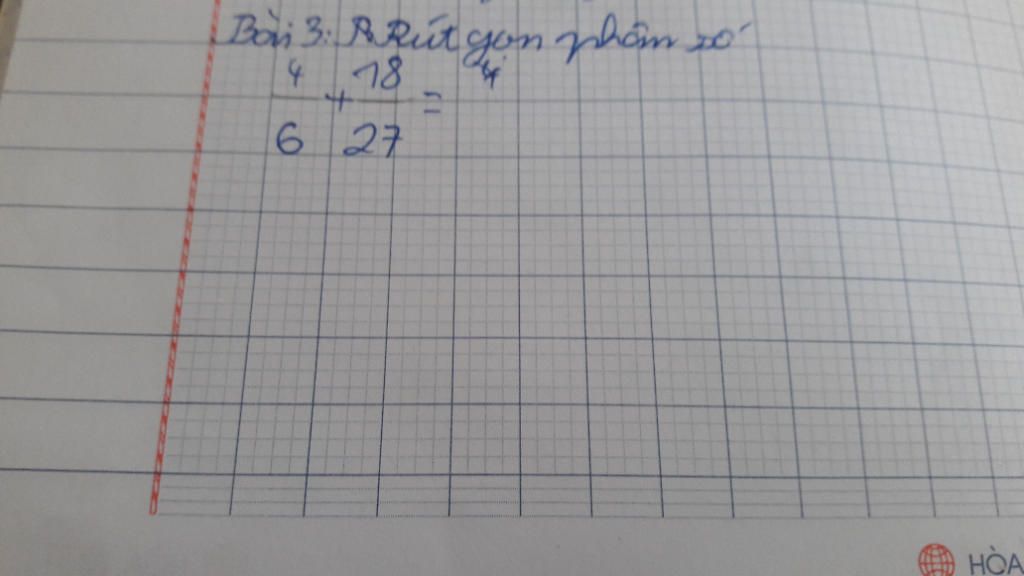 Bài 3: Rút gọn phân số
4 18 4
+ =
6 27
HÒA